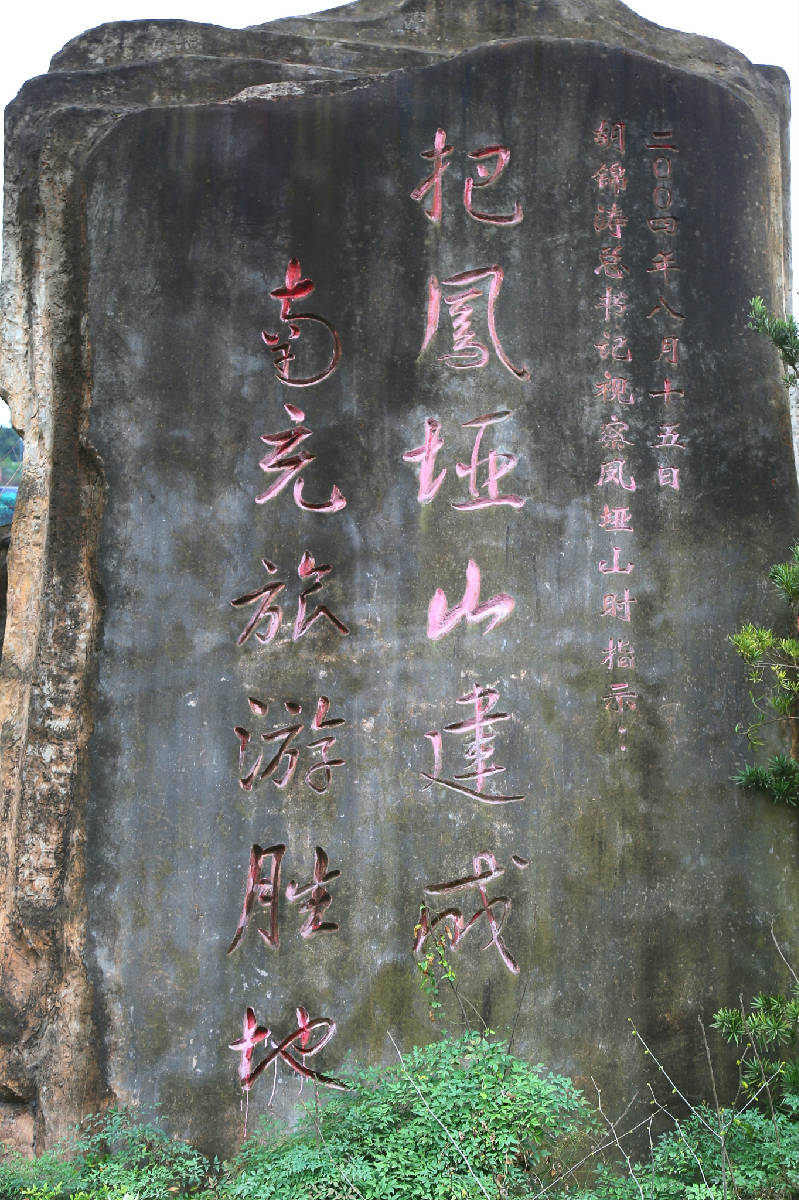 二〇〇四年八月十五日
胡锦涛总书记视察凤垭山时指示：
把鳳垭山建成
南充旅游胜地